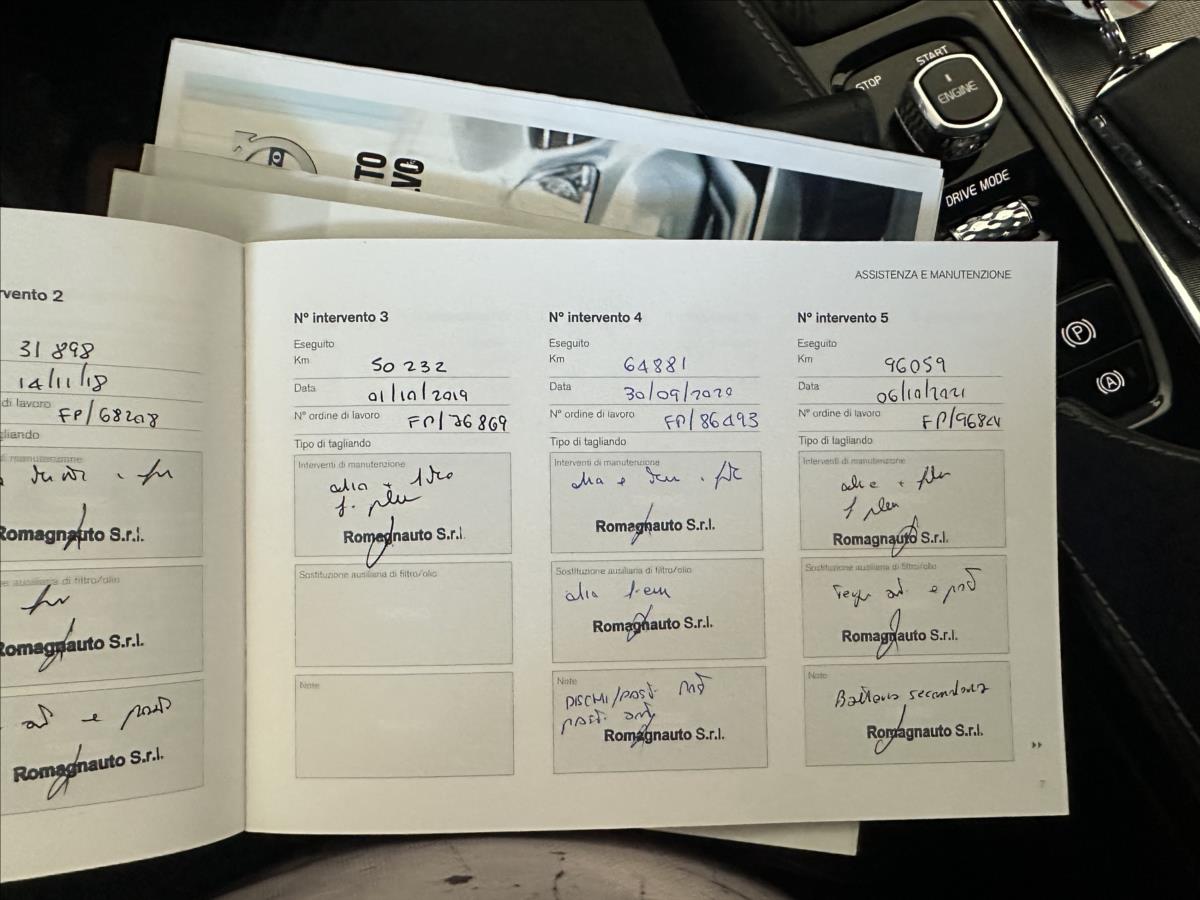 STOP
START
ENGINE
DRIVE MODE
TO
VO
ASSISTENZA E MANUTENZIONE
vento 2
31 898
14/11/18
di lavoro FP/68208
gliando
manutenzione
Romagnauto S.r.l.
e ausiliaria di filtro/olio
Romagnauto S.r.l.
e
Romagnauto S.r.l.
N° intervento 3
Eseguito
Km 50 232
Data 01/10/2019
N° ordine di lavoro FP/76869
Tipo di tagliando
Interventi di manutenzione
olio +
f.
Romagnauto S.r.l.
Sostituzione ausiliaria di filtro/olio
Note
N° intervento 4
Eseguito
Km 64881
Data 30/09/2020
N° ordine di lavoro FP/86493
Tipo di tagliando
Interventi di manutenzione
Romagnauto S.r.l.
Sostituzione ausiliaria di filtro/olio
olio
Romagnauto S.r.l.
Note
DISCHI/POST.
post. ant
Romagnauto S.r.l.
N° intervento 5
Eseguito
Km 96059
Data 06/10/2021
N° ordine di lavoro
Tipo di tagliando
Interventi di manutenzione
Romagnauto S.r.l.
Sostituzione ausiliaria di filtro/olio
ant. e post
Romagnauto S.r.l.
Note
Batteria secondaria
Romagnauto S.r.l.
7